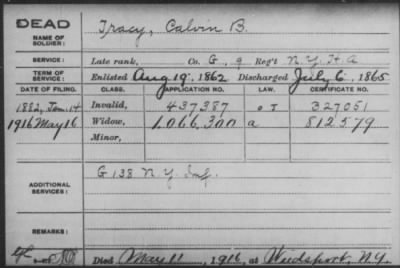 DEAD
NAME OF SOLDIER: Tracy, Calvin B.
SERVICE: Late rank, Co. G, 9 Reg't N.Y. H.A
TERM OF SERVICE: Enlisted Aug 19, 1862 Discharged July 6, 1865
DATE OF FILING. CLASS. APPLICATION NO. LAW. CERTIFICATE NO.
1882, Jan. 14 Invalid, 437387 327051
1916 May 16 Widow, 1,066,300 a 812579
Minor,
G 138 N.Y. Inf.
ADDITIONAL SERVICES:
REMARKS:
Died May 11, 1916, at Weedsport, N.Y.